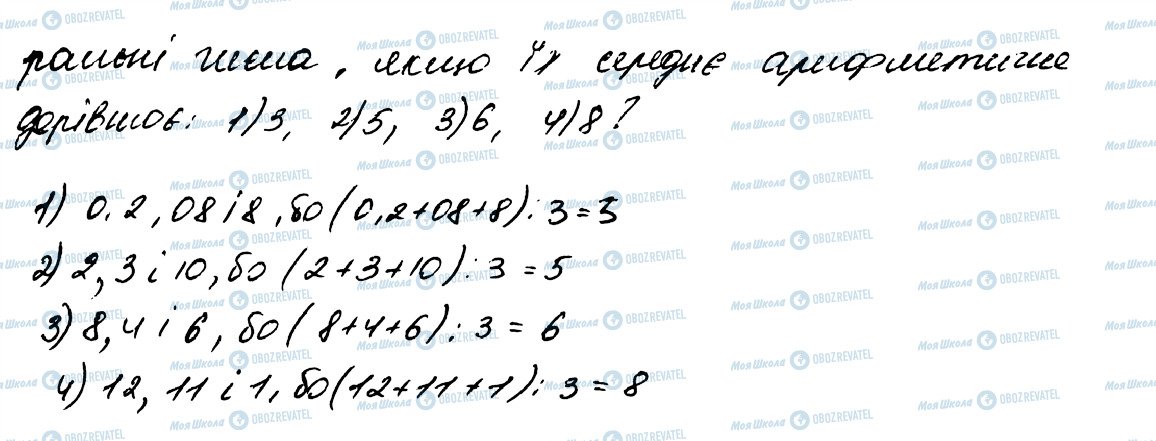 ральні числа, якщо їх середнє арифметичне
дорівнює: 1) 3, 2) 5, 3) 6, 4) 8?
1) 0.2, 08 і 8, бо (0,2+08+8) : 3 = 3
2) 2, 3 і 10, бо (2+3+10) : 3 = 5
3) 8, 4 і 6, бо (8+4+6) : 3 = 6
4) 12, 11 і 1, бо (12+11+1) : 3 = 8